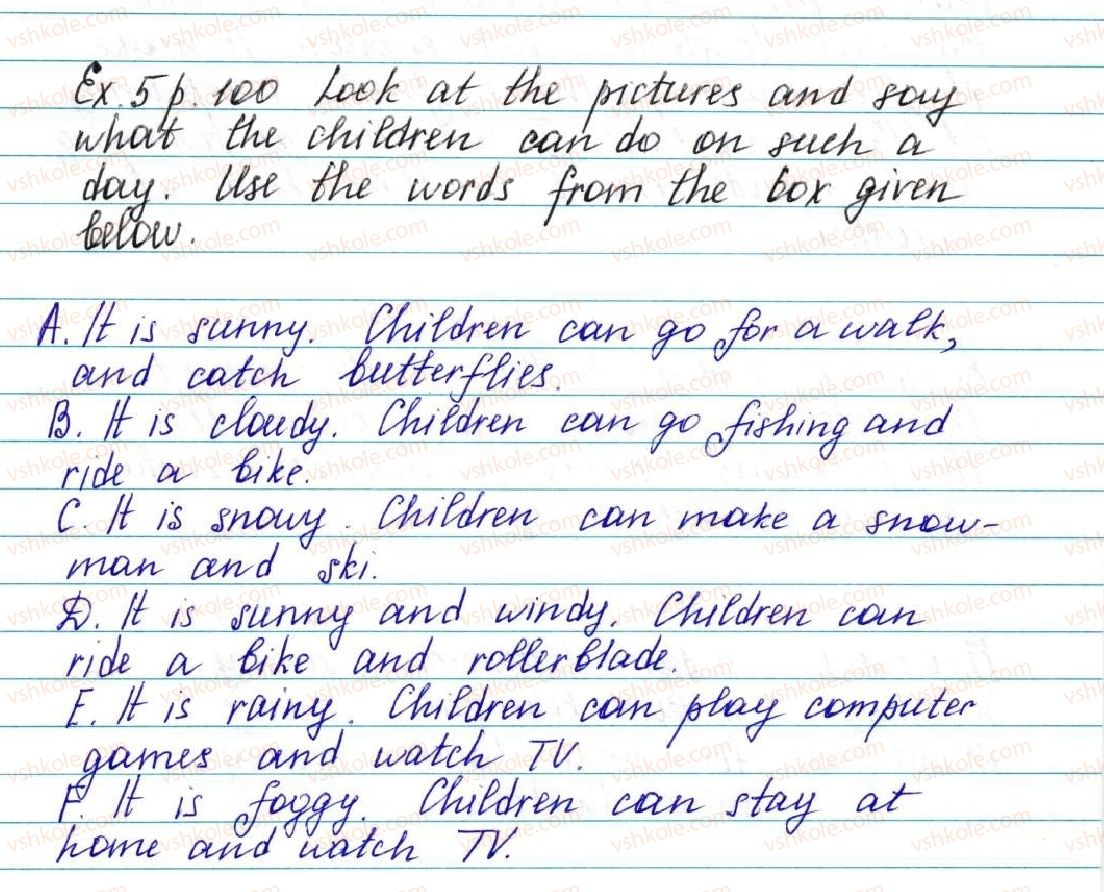 Ex. 5 p. 100 Look at the pictures and say
what the children can do on such a
day. Use the words from the box given
below.
A. It is sunny. Children can go for a walk,
and catch butterflies.
B. It is cloudy. Children can go fishing and
ride a bike.
C. It is snowy. Children can make a snow-
man and ski.
D. It is sunny and windy. Children can
ride a bike and rollerblade.
E. It is rainy. Children can play computer
games and watch TV.
F. It is foggy. Children can stay at
home and watch TV.
vshkole.com